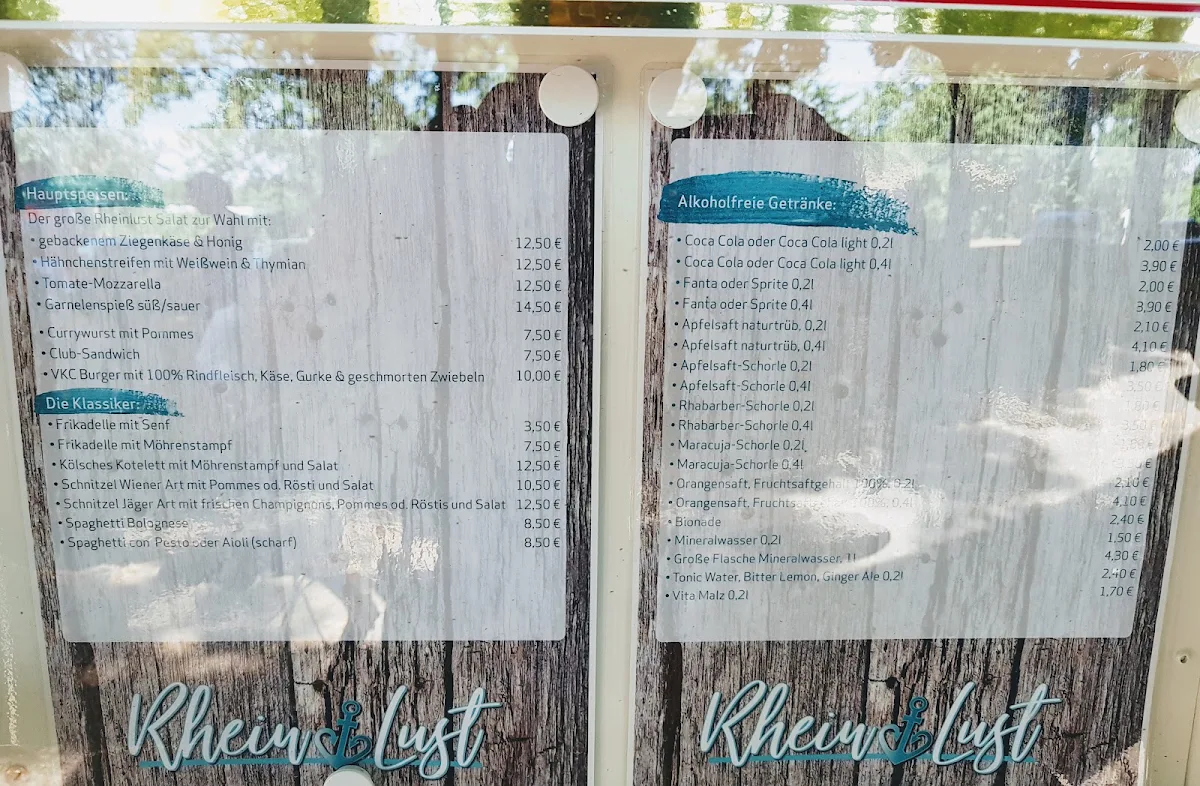 Hauptspeisen:
Der große Rheinlust Salat zur Wahl mit:
• gebackenem Ziegenkäse & Honig 12,50 €
• Hähnchenstreifen mit Weißwein & Thymian 12,50 €
• Tomate-Mozzarella 12,50 €
• Garnelenspieß süß/sauer 14,50 €
• Currywurst mit Pommes 7,50 €
• Club-Sandwich 7,50 €
• VKC Burger mit 100% Rindfleisch, Käse, Gurke & geschmorten Zwiebeln 10,00 €
Die Klassiker:
• Frikadelle mit Senf 3,50 €
• Frikadelle mit Möhrenstampf 7,50 €
• Kölsches Kotelett mit Möhrenstampf und Salat 12,50 €
• Schnitzel Wiener Art mit Pommes od. Rösti und Salat 10,50 €
• Schnitzel Jäger Art mit frischen Champignons, Pommes od. Röstis und Salat 12,50 €
• Spaghetti Bolognese 8,50 €
• Spaghetti con Pesto oder Aioli (scharf) 8,50 €
Rhein Lust
Alkoholfreie Getränke:
• Coca Cola oder Coca Cola light 0,2l 2,00 €
• Coca Cola oder Coca Cola light 0,4l 3,90 €
• Fanta oder Sprite 0,2l 2,00 €
• Fanta oder Sprite 0,4l 3,90 €
• Apfelsaft naturtrüb, 0,2l 2,10 €
• Apfelsaft naturtrüb, 0,4l 4,10 €
• Apfelsaft-Schorle 0,2l 1,80 €
• Apfelsaft-Schorle 0,4l 3,50 €
• Rhabarber-Schorle 0,2l
• Rhabarber-Schorle 0,4l 3,50 €
• Maracuja-Schorle 0,2l
• Maracuja-Schorle 0,4l
• Orangensaft, Fruchtsaftgehalt 100% 0,2l 2,10 €
• Orangensaft, 0,4l 4,10 €
• Bionade 2,40 €
• Mineralwasser 0,2l 1,50 €
• Große Flasche Mineralwasser, 1l 4,30 €
• Tonic Water, Bitter Lemon, Ginger Ale 0,2l 2,40 €
• Vita Malz 0,2l 1,70 €
Rhein Lust